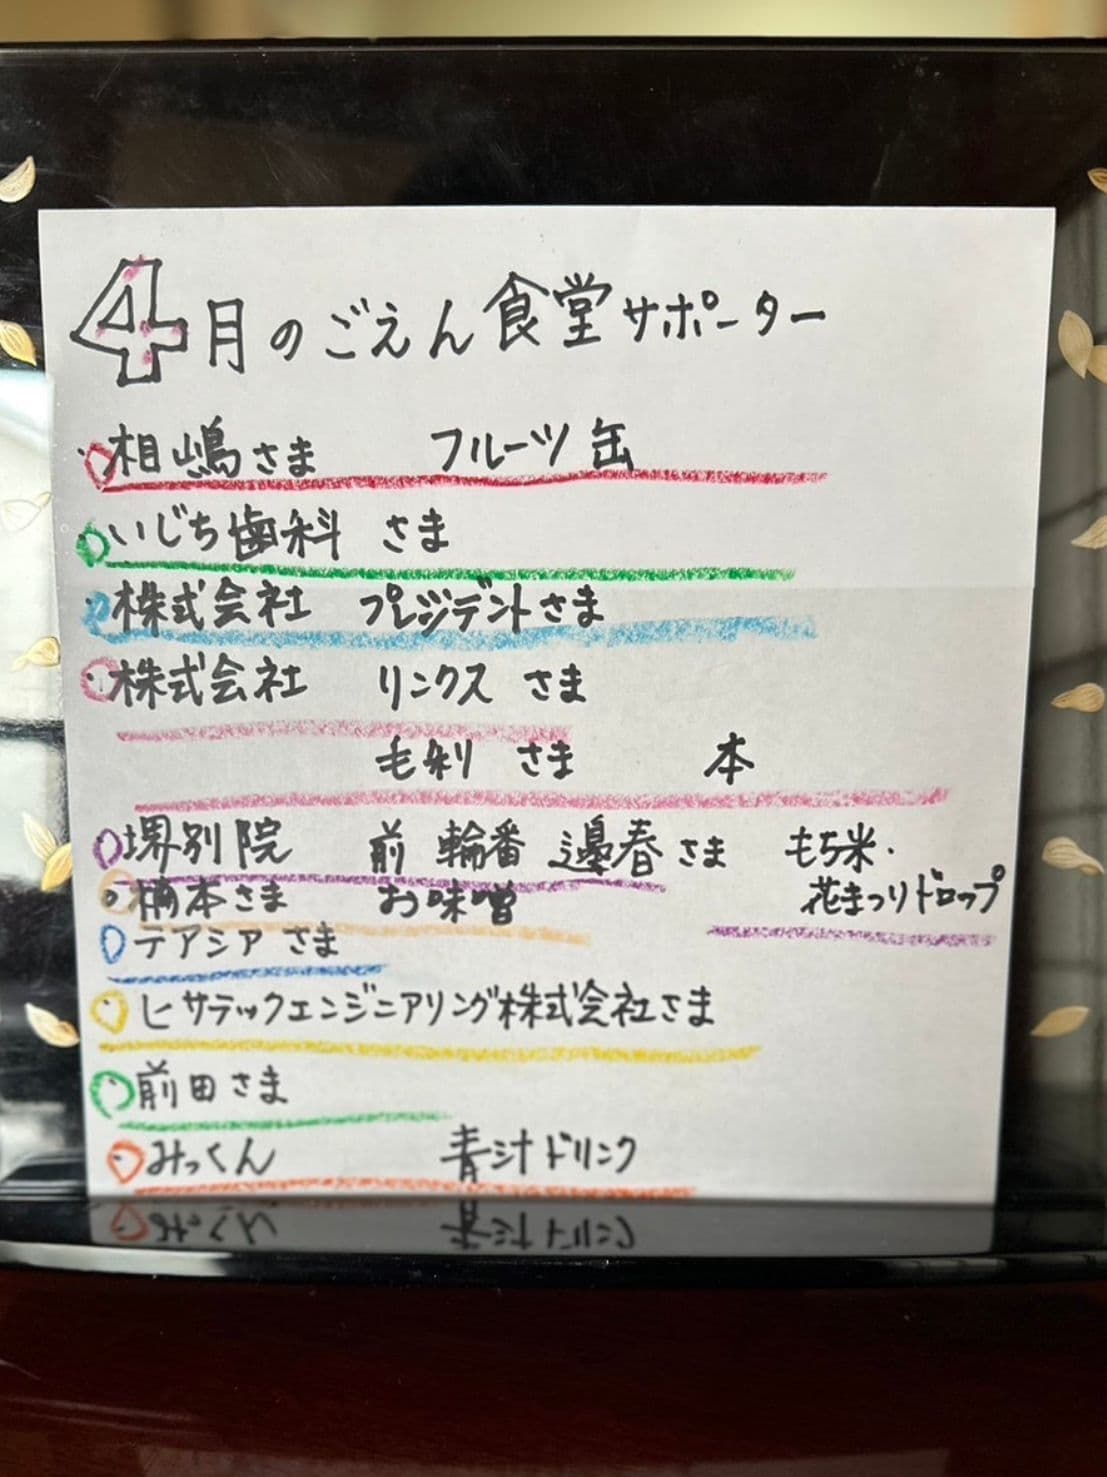 4月のごえん食堂サポーター
相嶋さま フルーツ缶
いじち歯科 さま
株式会社 プレジデントさま
株式会社 リンクス さま
毛利 さま 本
堺別院 前 輪番 邉春さま もち米・
花まつりドロップ
楠本さま お味噌
テアシア さま
ヒサラックエンジニアリング株式会社さま
前田さま
みっくん 青汁ドリンク